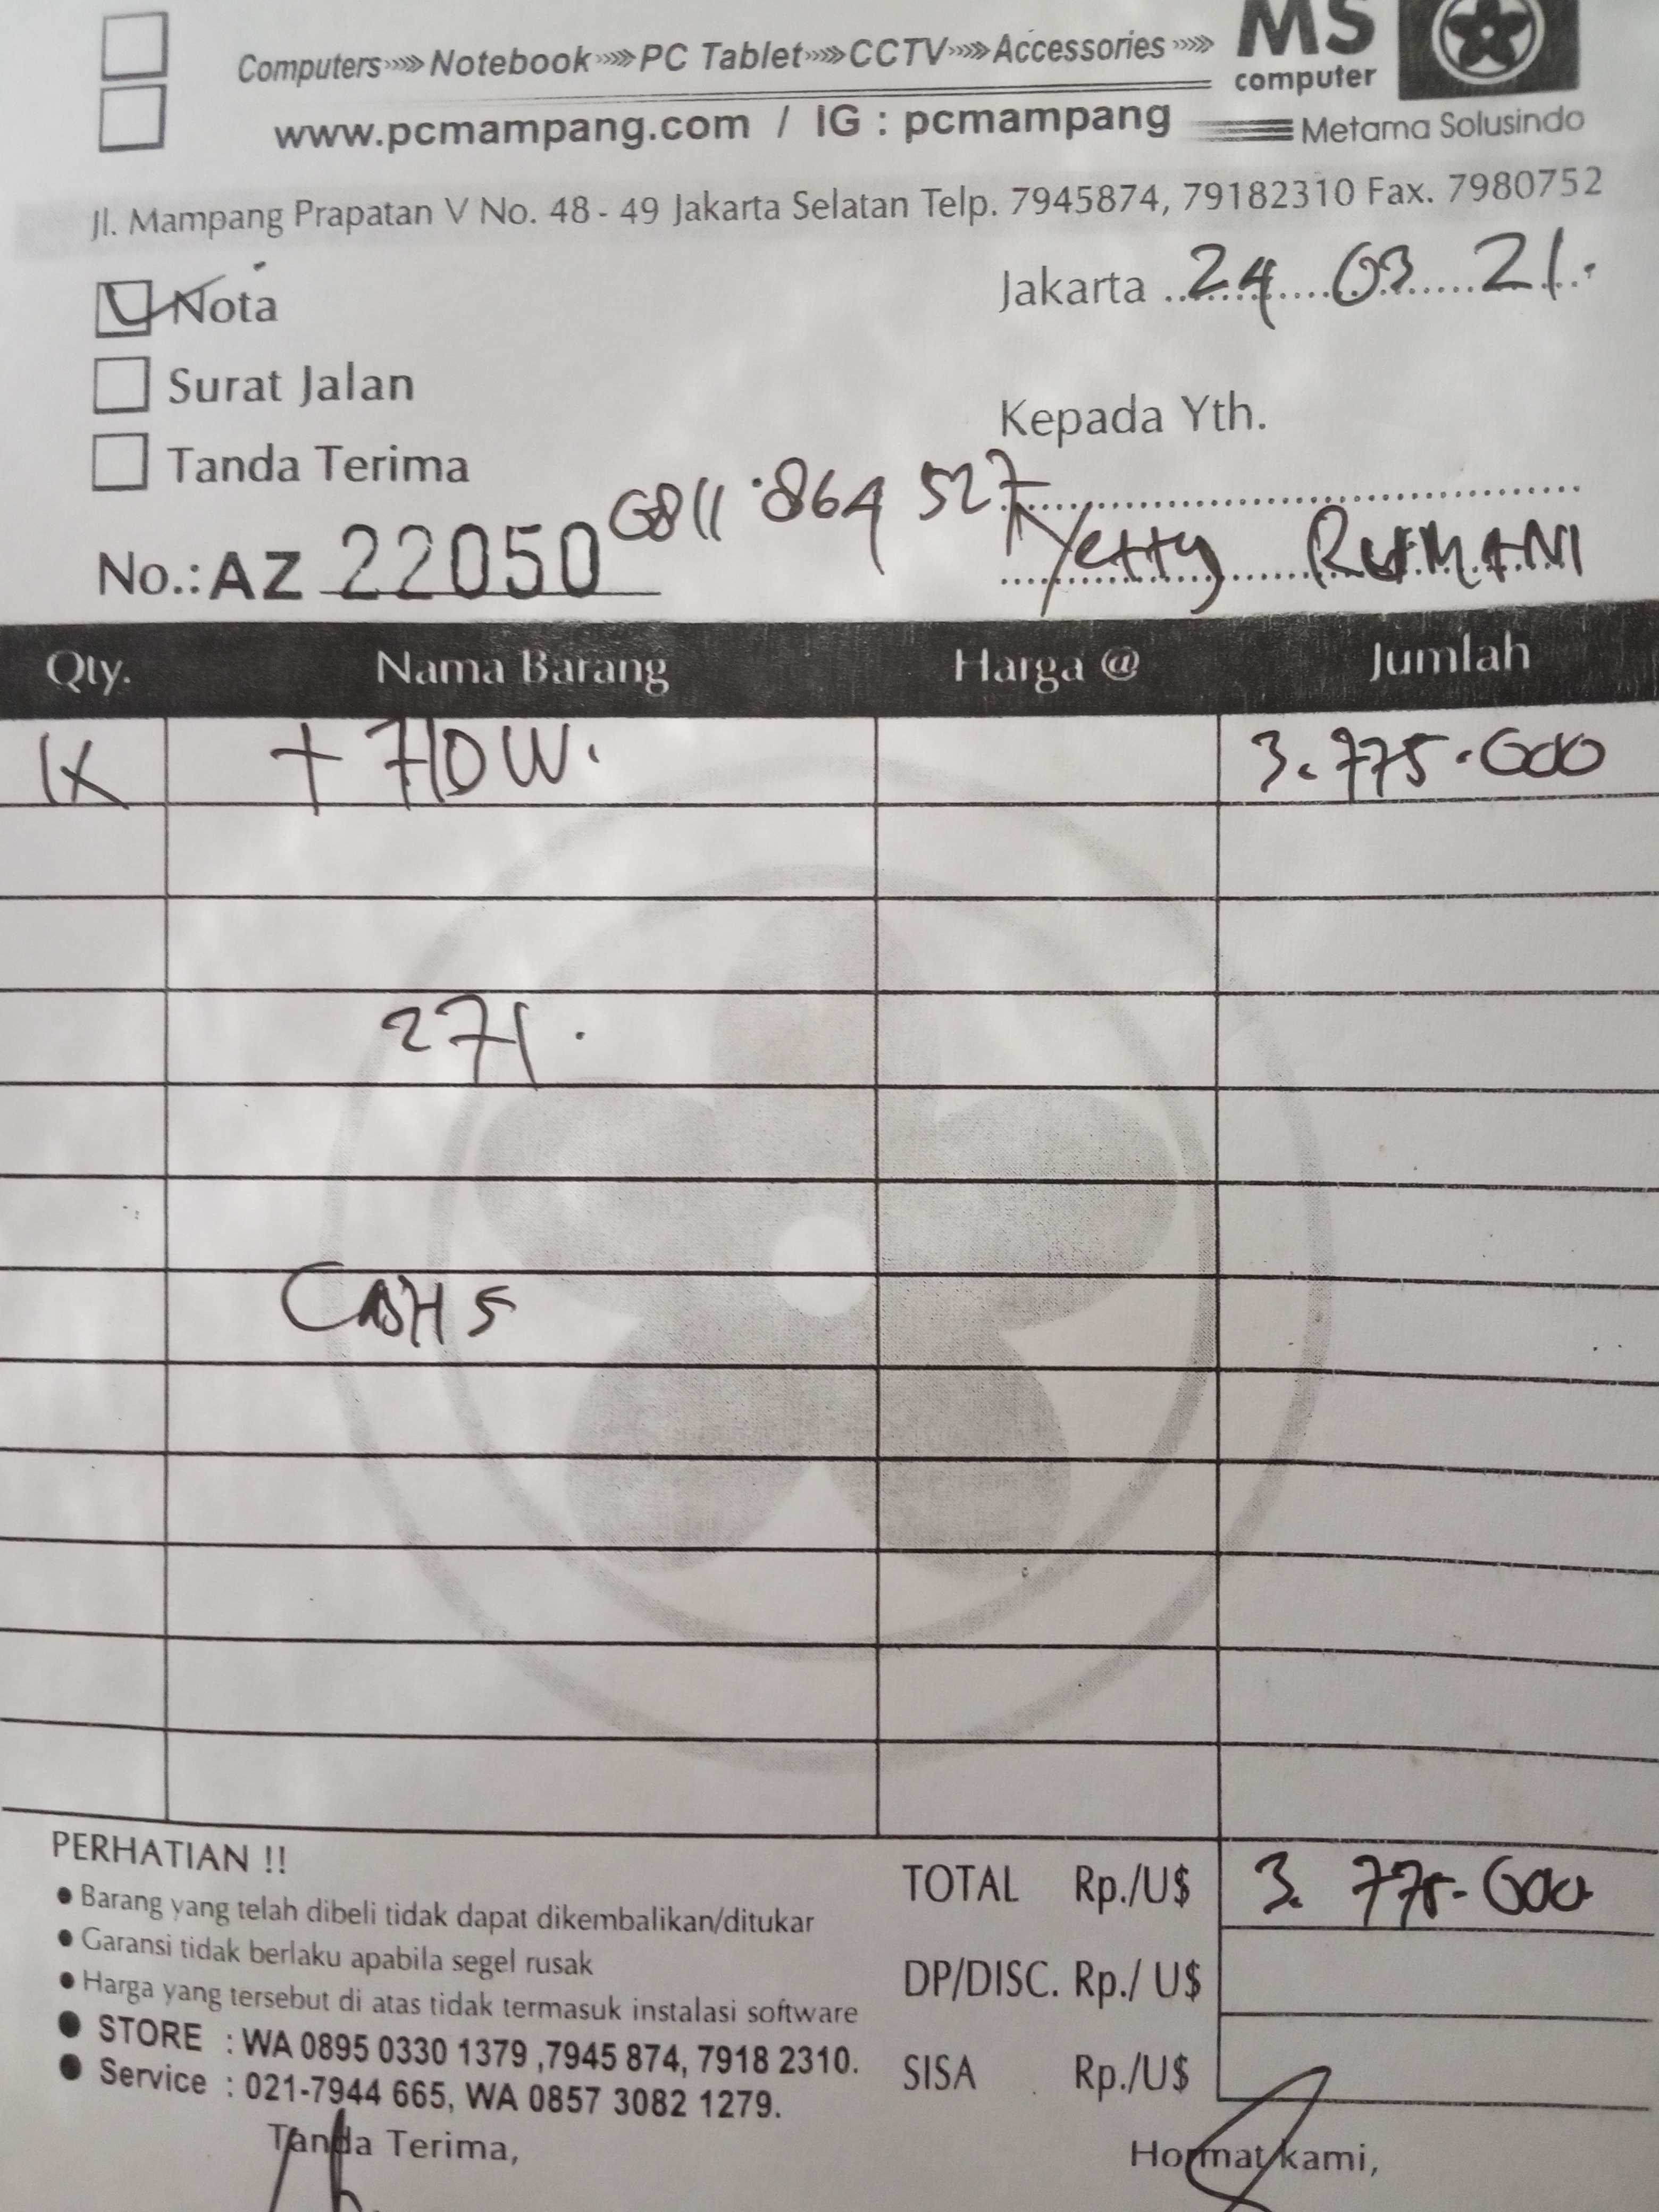 Computers Notebook PC Tablet CCTV Accessories
MS
computer
www.pcmampang.com / IG : pcmampang
Metama Solusindo
Jl. Mampang Prapatan V No. 48 - 49 Jakarta Selatan Telp. 7945874, 79182310 Fax. 7980752
Nota
Jakarta 24 03 21.
Surat Jalan
Kepada Yth.
Tanda Terima
0811 864 527
Yetty RUMANI
No.: AZ 22050
Qty. Nama Barang Harga @ Jumlah
1X T 710 W. 3.775.000
271.
CASH
PERHATIAN !!
• Barang yang telah dibeli tidak dapat dikembalikan/ditukar
• Garansi tidak berlaku apabila segel rusak
• Harga yang tersebut di atas tidak termasuk instalasi software
• STORE : WA 0895 0330 1379 ,7945 874, 7918 2310.
• Service : 021-7944 665, WA 0857 3082 1279.
TOTAL Rp./U$ 3. 775.000
DP/DISC. Rp./ U$
SISA Rp./U$
Tanda Terima,
Hormat kami,